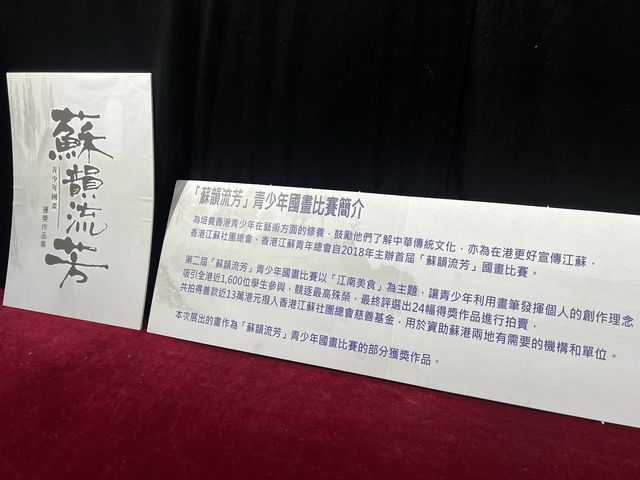 蘇韻流芳
青少年國畫
獲獎作品集
「蘇韻流芳」青少年國畫比賽簡介
為培養香港青少年在藝術方面的修養，鼓勵他們了解中華傳統文化，亦為在港更好宣傳江蘇，
香港江蘇社團總會、香港江蘇青年總會自2018年主辦首屆「蘇韻流芳」國畫比賽。
第二屆「蘇韻流芳」青少年國畫比賽以「江南美食」為主題，讓青少年利用畫筆發揮個人的創作理念
吸引全港近1,600位學生參與，競逐最高殊榮，最終評選出24幅得獎作品進行拍賣，
共拍得善款近13萬港元撥入香港江蘇社團總會慈善基金，用於資助蘇港兩地有需要的機構和單位。
本次展出的畫作為「蘇韻流芳」青少年國畫比賽的部分獲獎作品。